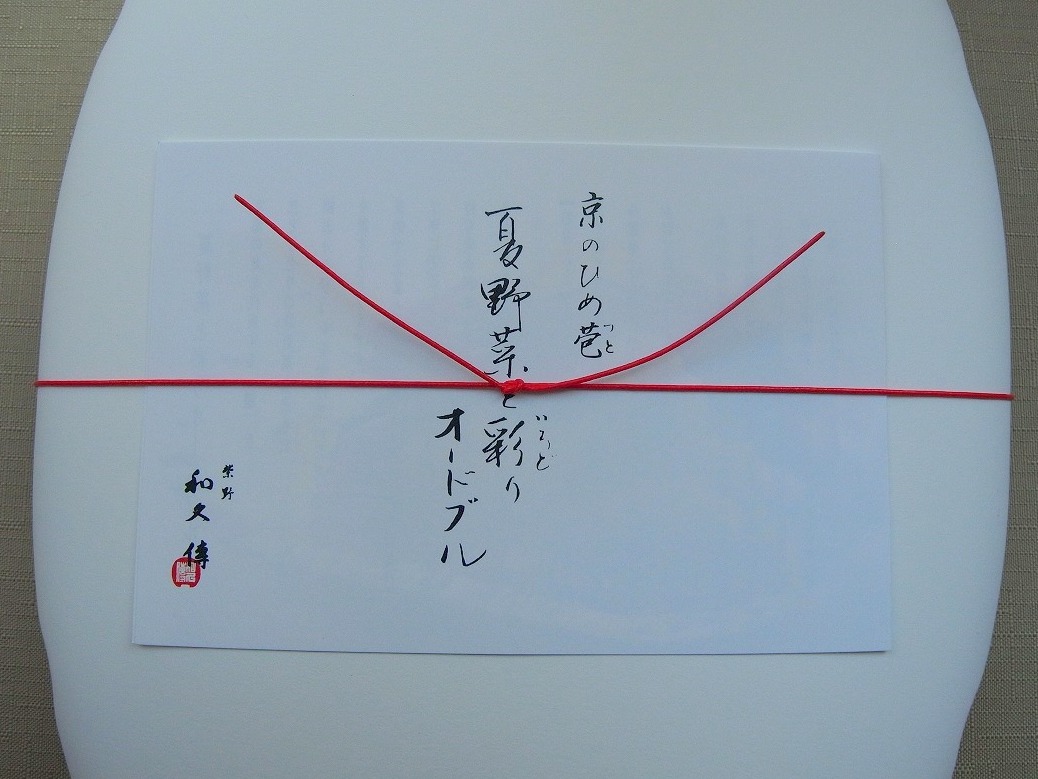 京のひめ苞
つと
夏野菜と彩り
いろど
オードブル
紫野
和久傳